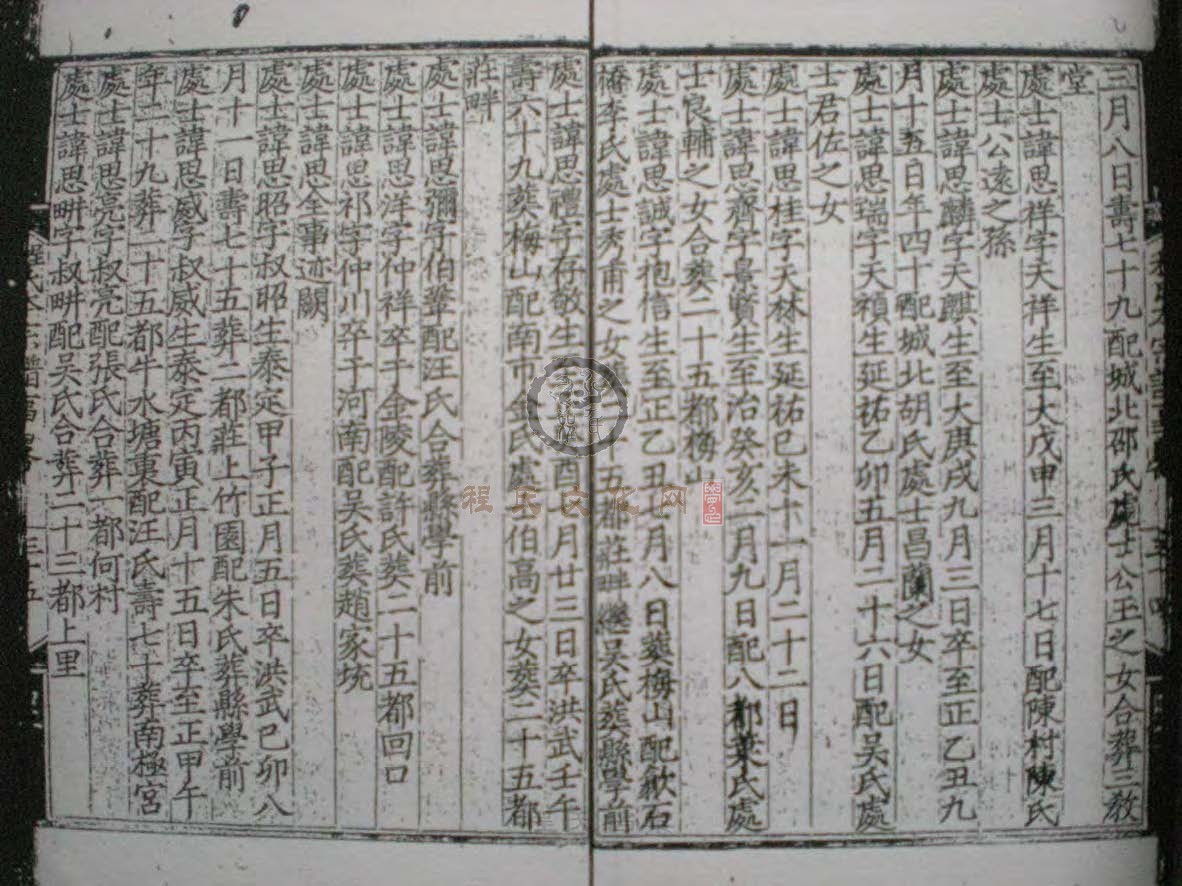 三月八日壽七十九配城北邵氏處士公玉之女合葬三教
堂
處士諱思祥字天祥生至大戊申三月十七日配陳村陳氏
處士公遠之孫
處士諱思麟字天麒生至大庚戌九月三日卒至正乙丑九
月十五日年四十配城北胡氏處士昌蘭之女
處士諱思瑞字天禎生延祐乙卯五月二十六日配吳氏處
士君佐之女
處士諱思桂字天林生延祐己未十一月二十二日
處士諱思齊字景賢生至治癸亥二月九日配八都葉氏處
士良輔之女合葬二十五都梅山
處士諱思誠字抱信生至正乙丑七月八日葬梅山配歙石
李氏處士秀甫之女葬二十五都莊畔繼吳氏葬縣學前
處士諱思禮字存敬生酉七月廿三日卒洪武壬午
壽六十九葬梅山配南市金氏處士伯高之女葬二十五都
莊畔
處士諱思彌字伯鞏配汪氏合葬縣學前
處士諱思洋字仲祥卒于金陵配許氏葬二十五都回口
處士諱思祁字仲川卒于河南配吳氏葬趙家坑
處士諱思全事迹闕
處士諱思昭字叔昭生泰定甲子正月五日卒洪武己卯八
月十一日壽七十五葬二都莊上竹園配朱氏葬縣學前
處士諱思威字叔威生泰定丙寅正月十五日卒至正甲午
年二十九葬二十五都牛水塘東配汪氏壽七十葬南極宮
處士諱思亮字叔亮配張氏合葬一都何村
處士諱思畊字叔畊配吳氏合葬二十三都上里
程氏文化网